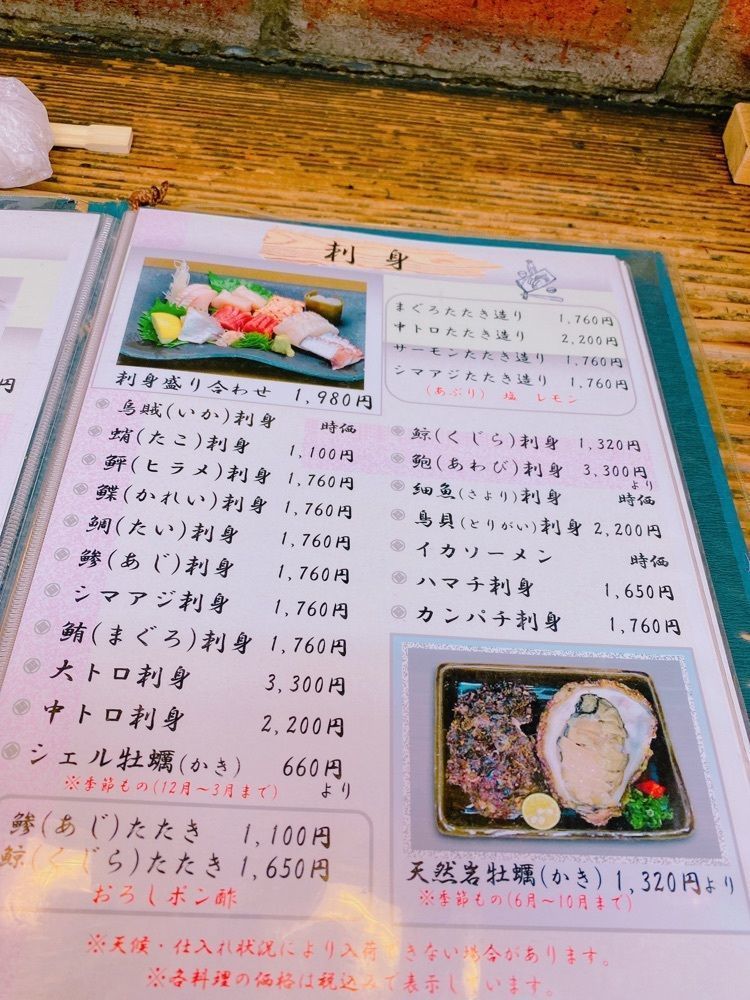 刺身
刺身盛り合わせ 1,980円
まぐろたたき造り 1,760円
中トロたたき造り 2,200円
サーモンたたき造り 1,760円
シマアジたたき造り 1,760円
(あぶり) 塩 レモン
烏賊(いか)刺身 時価
蛸(たこ)刺身 1,100円
鮃(ヒラメ)刺身 1,760円
鰈(かれい)刺身 1,760円
鯛(たい)刺身 1,760円
鯵(あじ)刺身 1,760円
シマアジ刺身 1,760円
鮪(まぐろ)刺身 1,760円
大トロ刺身 3,300円
中トロ刺身 2,200円
シェル牡蠣(かき) 660円
※季節もの(12月〜3月まで) より
鯵(あじ)たたき 1,100円
鯨(くじら)たたき 1,650円
おろしポン酢
鯨(くじら)刺身 1,320円
鮑(あわび)刺身 3,300円
より
細魚(さより)刺身 時価
鳥貝(とりがい)刺身 2,200円
イカソーメン 時価
ハマチ刺身 1,650円
カンパチ刺身 1,760円
天然岩牡蠣(かき) 1,320円より
※季節もの(6月〜10月まで)
※天候・仕入れ状況により入荷できない場合があります。
※各料理の価格は税込みで表示しています。
円